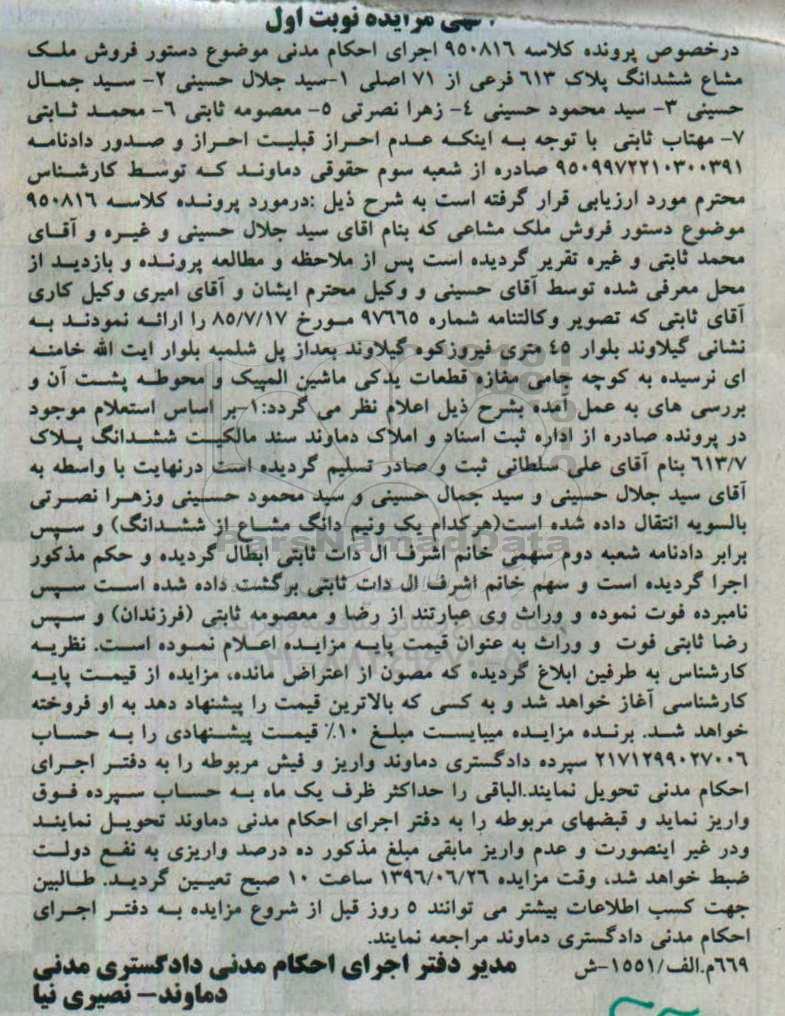 آگهی مزایده نوبت اول
درخصوص پرونده کلاسه ۹۵۰۸۱۶ اجرای احکام مدنی موضوع دستور فروش ملک
مشاع ششدانگ پلاک ۶۱۳ فرعی از ۷۱ اصلی ۱-سید جلال حسینی ۲- سید جمال
حسینی ۳- سید محمود حسینی ٤- زهرا نصرتی ٥- معصومه ثابتی ٦- محمد ثابتی
۷- مهتاب ثابتی با توجه به اینکه عدم احراز قبلیت احراز و صدور دادنامه
۹۵۰۹۹۷۲۲۱۰۳۰۰۳۹۱ صادره از شعبه سوم حقوقی دماوند که توسط کارشناس
محترم مورد ارزیابی قرار گرفته است به شرح ذیل :درمورد پرونده کلاسه ۹۵۰۸۱۶
موضوع دستور فروش ملک مشاعی که بنام اقای سید جلال حسینی و غیره و آقای
محمد ثابتی و غیره تقریر گردیده است پس از ملاحظه و مطالعه پرونده و بازدید از
محل معرفی شده توسط آقای حسینی و وکیل محترم ایشان و آقای امیری وکیل کاری
آقای ثابتی که تصویر وکالتنامه شماره ۹۷۶۶۵ مورخ ۸۵/۷/۱۷ را ارائه نمودند به
نشانی گیلاوند بلوار ٤٥ متری فیروزکوه گیلاوند بعداز پل شلمبه بلوار ایت الله خامنه
ای نرسیده به کوچه جامی مغازه قطعات یدکی ماشین المپیک و محوطه پشت آن و
بررسی های به عمل آمده بشرح ذیل اعلام نظر می گردد:۱-بر اساس استعلام موجود
در پرونده صادره از اداره ثبت اسناد و املاک دماوند سند مالکیت ششدانگ پلاک
۶۱۳/۷ بنام آقای علی سلطانی ثبت و صادر تسلیم گردیده است درنهایت با واسطه به
آقای سید جلال حسینی و سید جمال حسینی و سید محمود حسینی وزهرا نصرتی
بالسویه انتقال داده شده است(هرکدام یک ونیم دانگ مشاع از ششدانگ) و سپس
برابر دادنامه شعبه دوم سهمی خانم اشرف ال دات ثابتی ابطال گردیده و حکم مذکور
اجرا گردیده است و سهم خانم اشرف ال دات ثابتی برگشت داده شده است سپس
نامبرده فوت نموده و وراث وی عبارتند از رضا و معصومه ثابتی (فرزندان) و سپس
رضا ثابتی فوت و وراث به عنوان قیمت پایه مزایده اعلام نموده است. نظریه
کارشناس به طرفین ابلاغ گردیده که مصون از اعتراض مانده، مزایده از قیمت پایه
کارشناسی آغاز خواهد شد و به کسی که بالاترین قیمت را پیشنهاد دهد به او فروخته
خواهد شد. برنده مزایده میبایست مبلغ ۱۰٪ قیمت پیشنهادی را به حساب
۲۱۷۱۲۹۹۰۲۷۰۰۶ سپرده دادگستری دماوند واریز و فیش مربوطه را به دفتر اجرای
احکام مدنی تحویل نمایند.الباقی را حداکثر ظرف یک ماه به حساب سپرده فوق
واریز نماید و قبضهای مربوطه را به دفتر اجرای احکام مدنی دماوند تحویل نمایند
ودر غیر اینصورت و عدم واریز مابقی مبلغ مذکور ده درصد واریزی به نفع دولت
ضبط خواهد شد، وقت مزایده ۱۳۹۶/۰۶/۲۶ ساعت ۱۰ صبح تعیین گردید. طالبین
جهت کسب اطلاعات بیشتر می توانند ٥ روز قبل از شروع مزایده به دفتر اجرای
احکام مدنی دادگستری دماوند مراجعه نمایند.
۶۶۹م.الف/۱۵۵۱-ش مدیر دفتر اجرای احکام مدنی دادگستری مدنی
دماوند- نصیری نیا
ParsNamadData